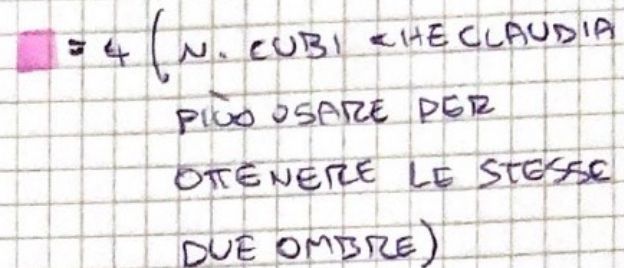 = 4 (N. CUBI CHE CLAUDIA
PUÒ USARE PER
OTTENERE LE STESSE
DUE OMBRE)